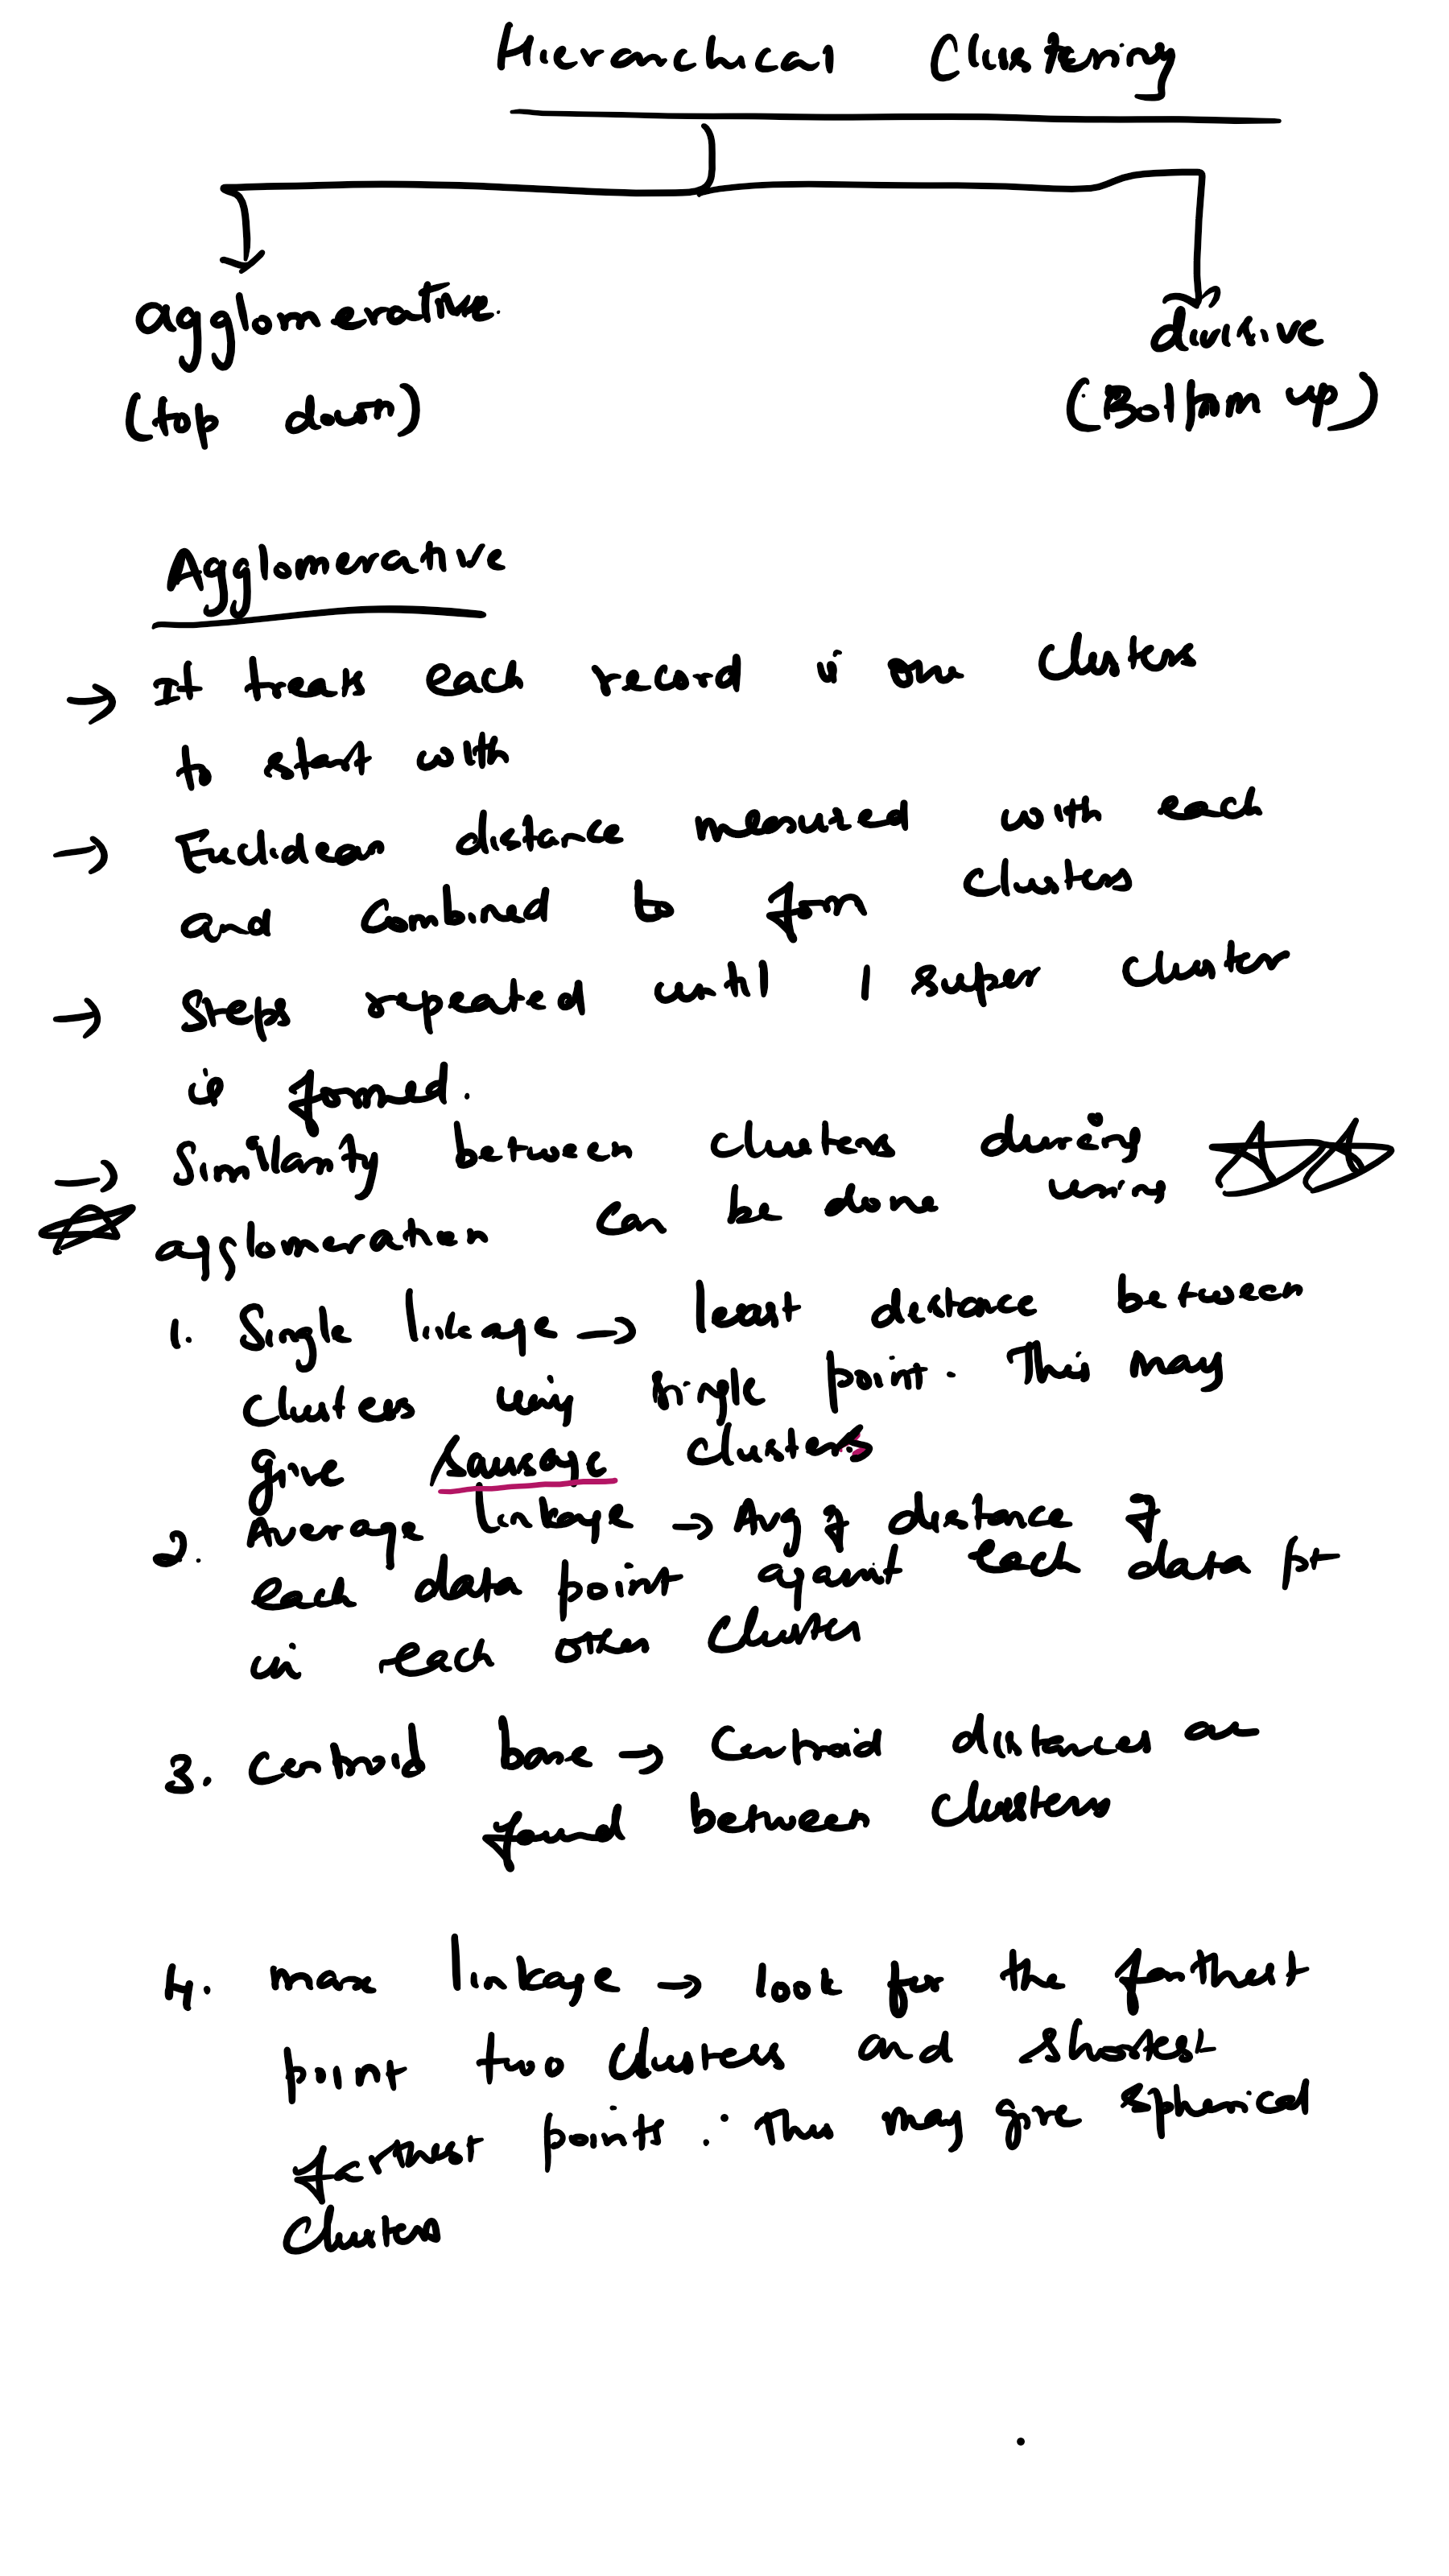 Hierarchical Clustering
agglomerative.
divisive
(top down)
(Bottom up)
Agglomerative
→ It treats each record is one clusters
to start with
→ Euclidean distance measured with each
and combined to form clusters
→ Steps repeated until 1 super cluster
is formed.
→ Similarity between clusters during
agglomeration can be done using
1. Single linkage → least distance between
clusters using single point. This may
give sausage clusters
2. Average linkage → Avg of distance of
each data point against each data pt
in each other cluster
3. Centroid base → Centroid distances are
found between clusters
4. max linkage → look for the farthest
point two clusters and shortest
farthest points. This may give spherical
clusters